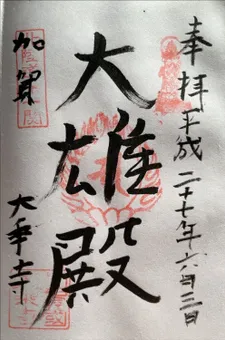 奉拝 平成二十七年六月三日
大雄殿
加賀
大乗寺